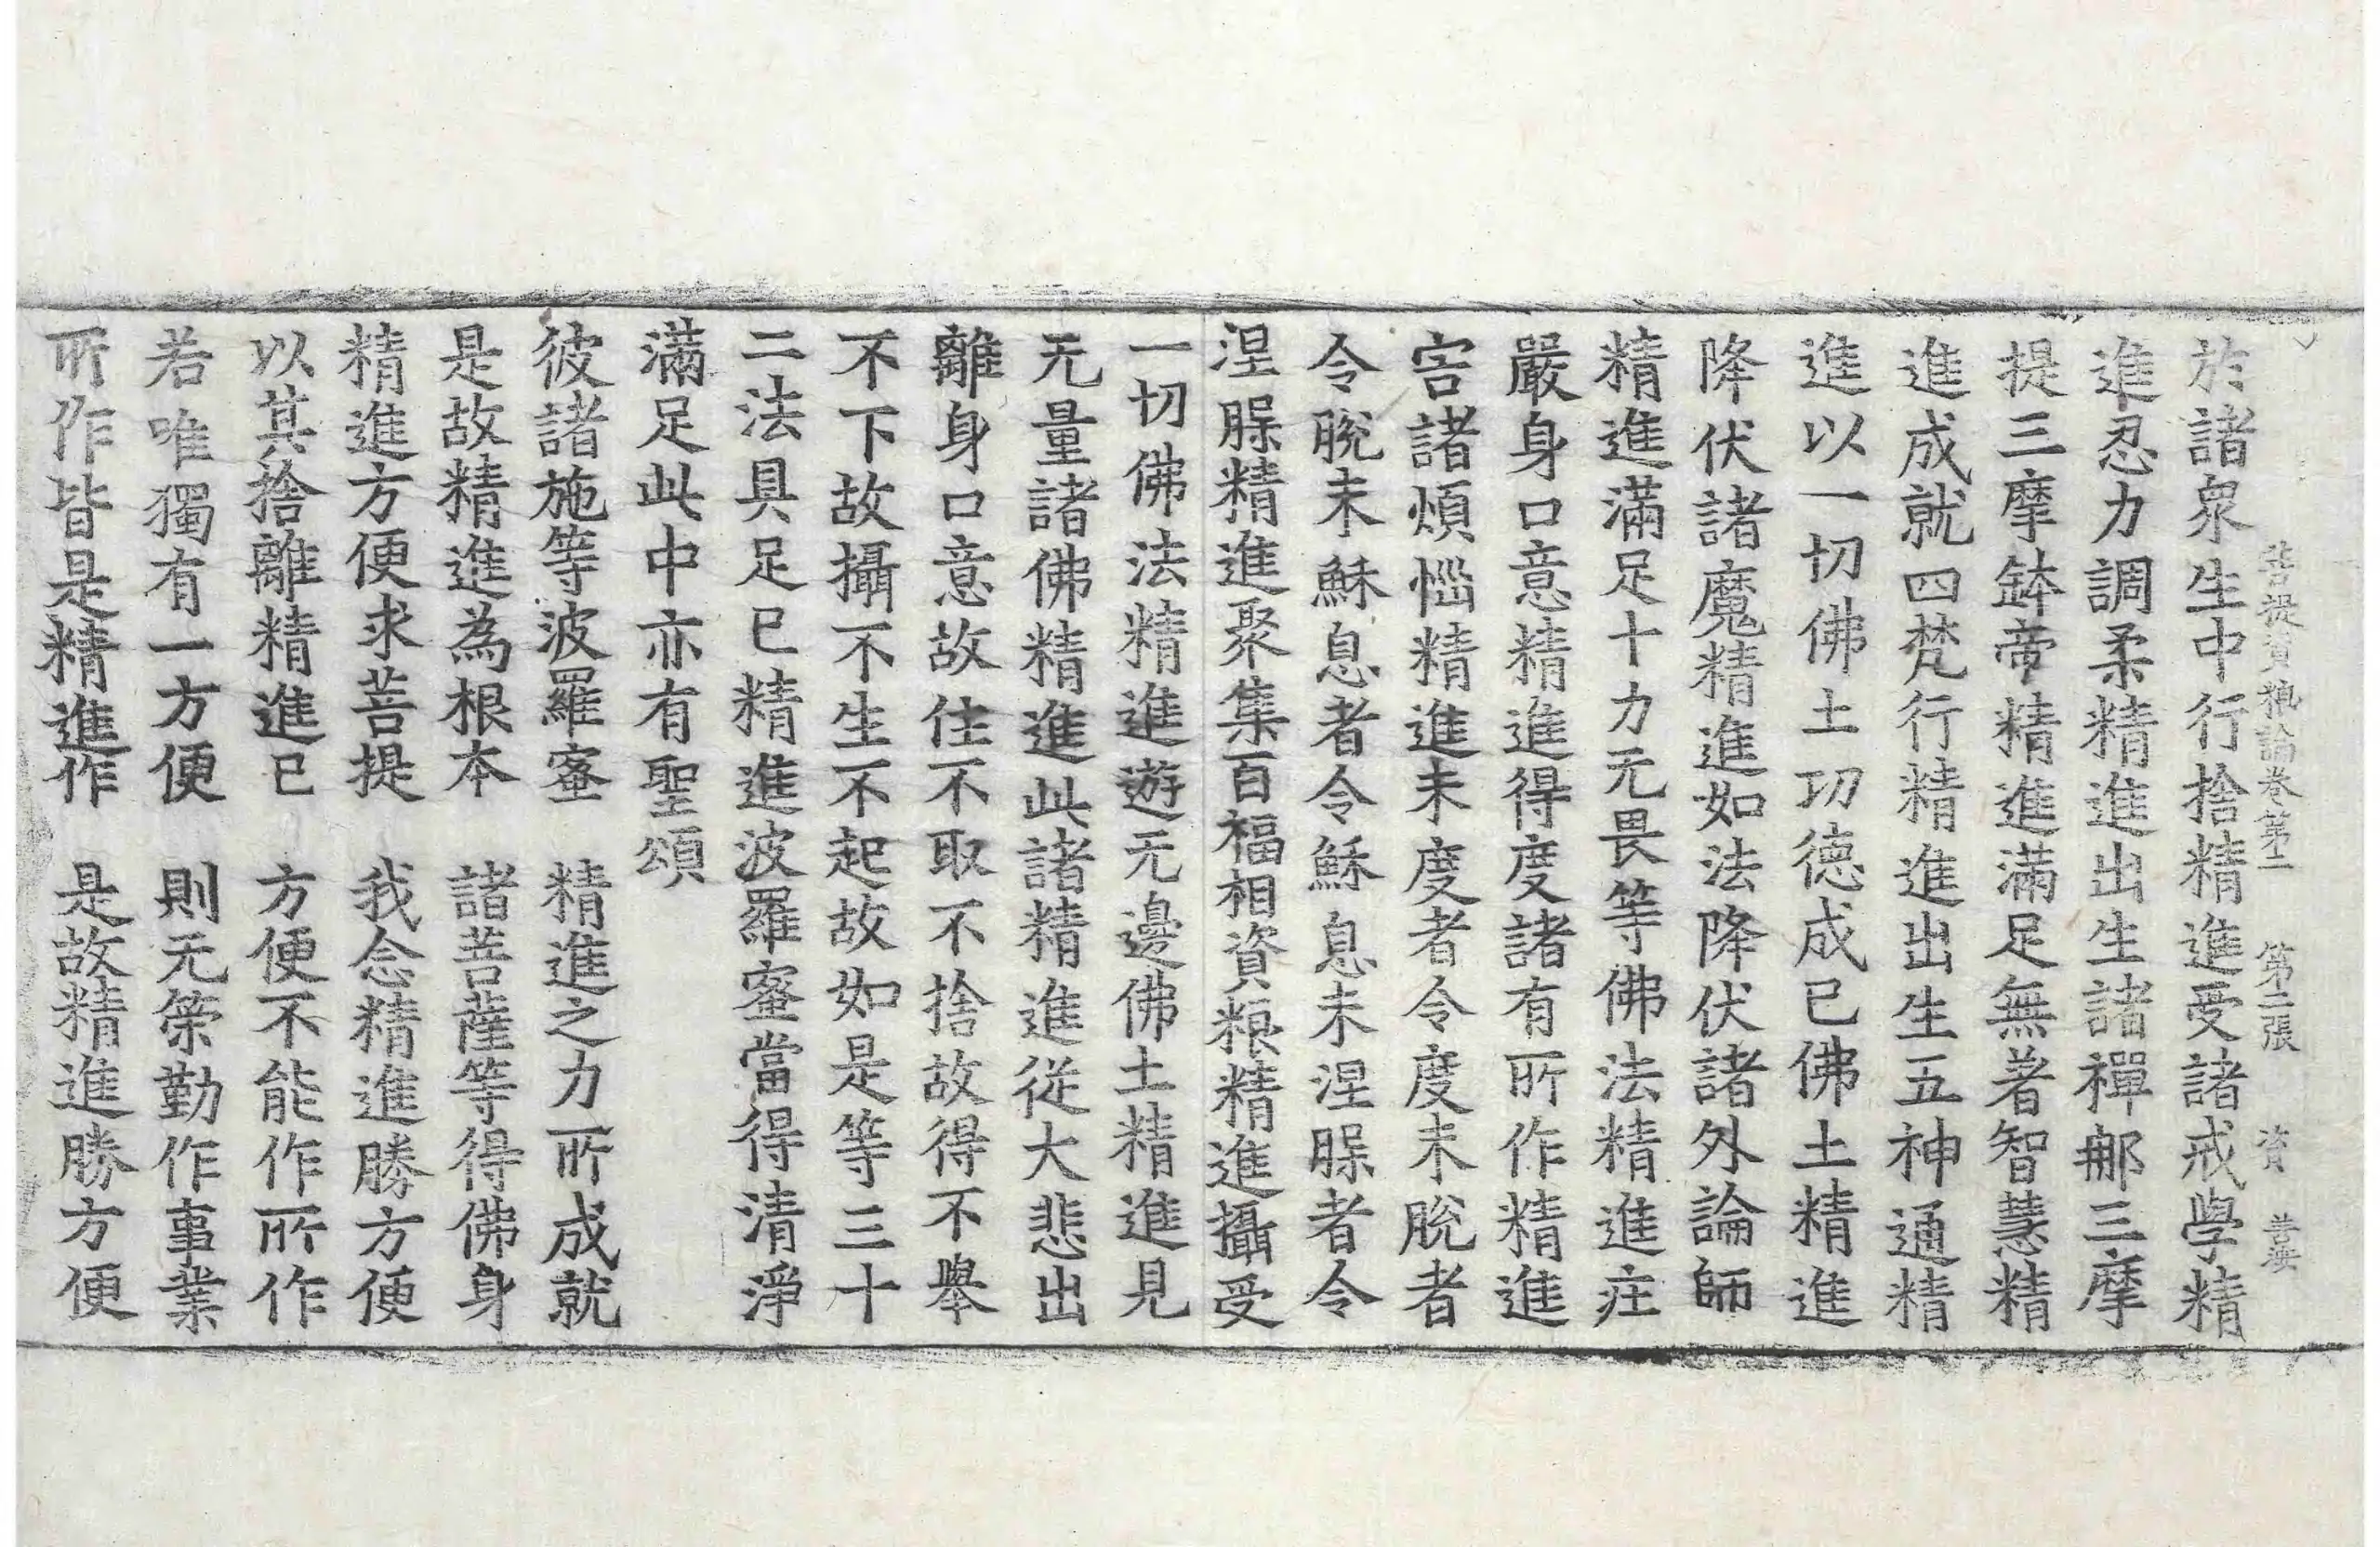 菩提資粮論卷第二　第二張　資　善安
於諸衆生中行捨精進受諸戒學精
進忍力調柔精進出生諸禪𨚗三摩
提三摩鉢帝精進滿足無著智慧精
進成就四梵行精進出生五神通精
進以一切佛土功德成已佛土精進
降伏諸魔精進如法降伏諸外論師
精進滿足十力无畏等佛法精進庄
嚴身口意精進得度諸有所作精進
害諸煩惱精進未度者令度未脫者
令脫未穌息者令穌息未涅槃者令
涅槃精進聚集百福相資粮精進攝受
一切佛法精進遊无邊佛土精進見
无量諸佛精進此諸精進從大悲出
離身口意故住不取不捨故得不舉
不下故攝不生不起故如是等三十
二法具足已精進波羅蜜當得清淨
滿足此中亦有聖頌
彼諸施等波羅蜜　精進之力所成就
是故精進為根本　諸菩薩等得佛身
精進方便求菩提　我念精進勝方便
以其捨離精進已　方便不能作所作
若唯獨有一方便　則无策勤作事業
所作皆是精進作　是故精進勝方便